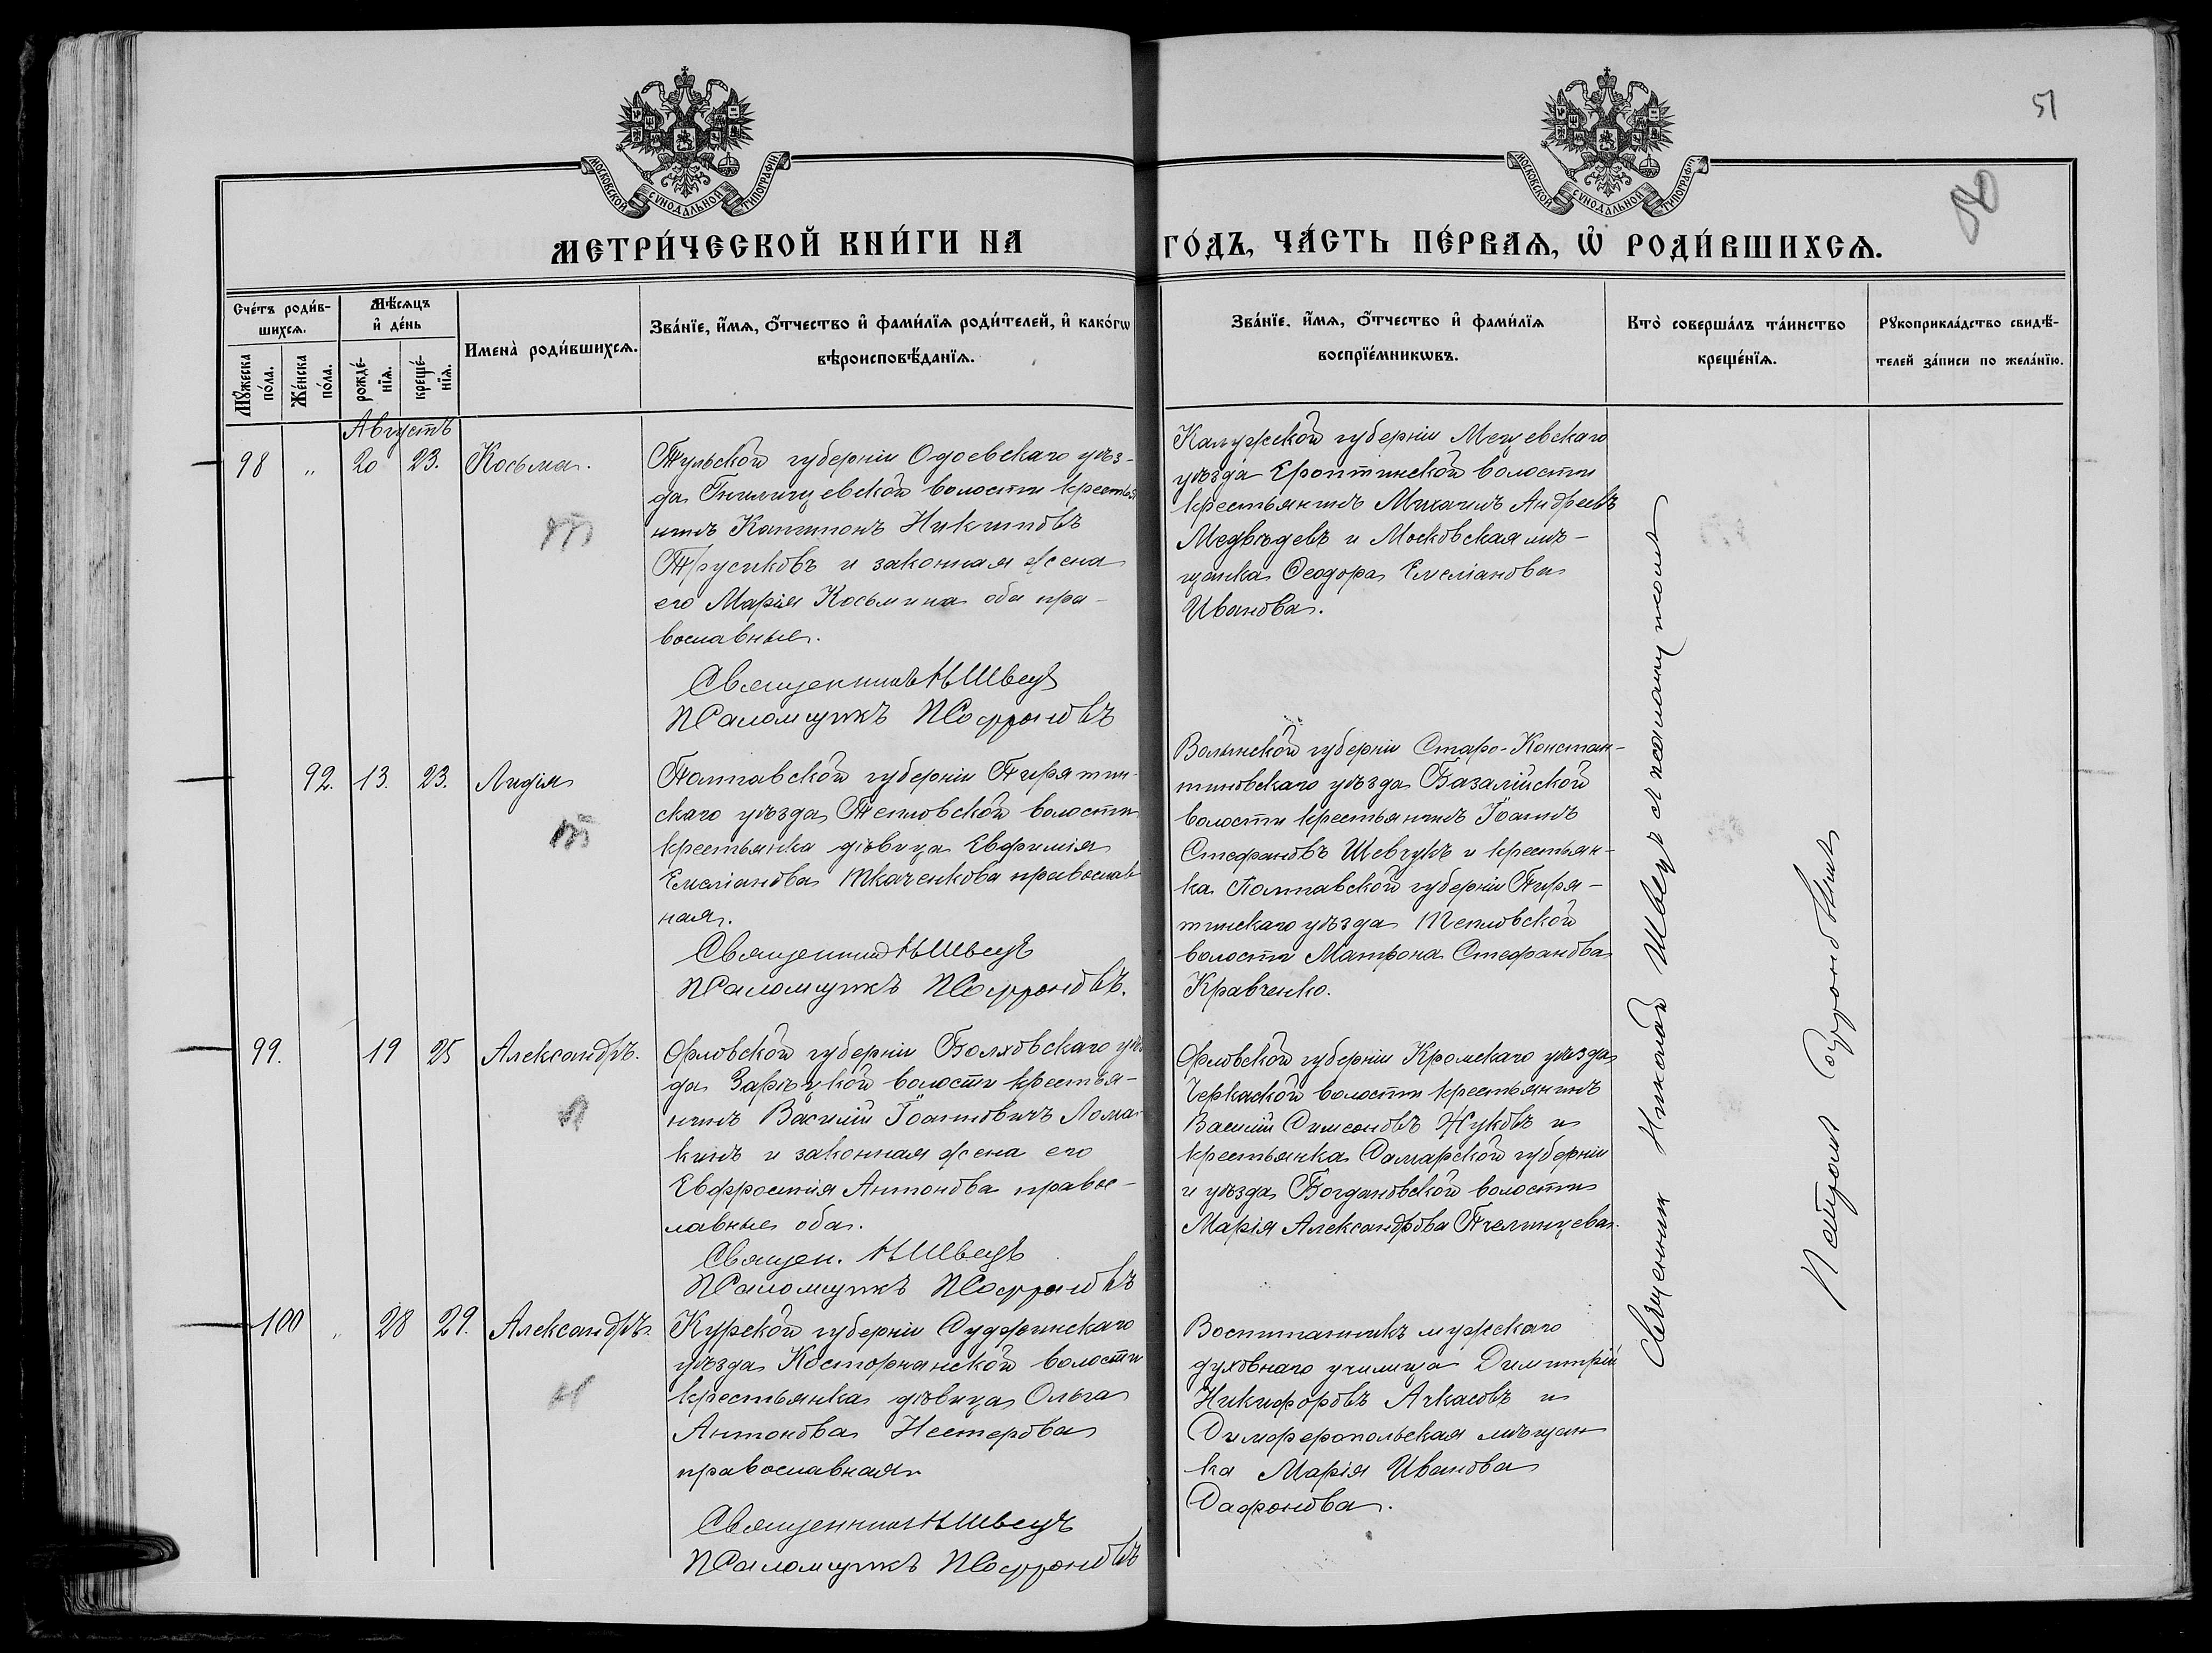 51
50
МОСКОВСКОЙ СѴНОДАЛЬНОЙ ТИПОГРАФІИ
МОСКОВСКОЙ СѴНОДАЛЬНОЙ ТИПОГРАФІИ
МЕТРИ́ЧЕСКОЙ КНИ́ГИ НА ГО́ДЪ, ЧА́СТЬ ПЕ́РВАѦ, Ѡ҆ РОДИ́ВШИХСѦ.
Сче́тъ роди́в-
шихсѧ.
Мꙋ́жеска
по́ла.
Же́нска
по́ла.
Мѣ́сѧцъ
и҆ де́нь
рожде́-
нїѧ.
креще́-
нїѧ.
Имена̀ роди́вшихсѧ.
Зва́нїе, и҆́мѧ, о҆́тчество и҆ фами́лїѧ роди́телей, и҆ како́гѡ
вѣроисповѣ́данїѧ.
Зва́нїе, и҆́мѧ, о҆́тчество и҆ фами́лїѧ
воспрїе́мникѡвъ.
Кто̀ соверша́лъ та́инство
креще́нїѧ.
Рꙋкоприкла́дство свидѣ́-
телей за́писи по жела́нїю.
Августъ
98 " 20 23. Косьма.
Тульской губерніи Одоевскаго уѣз-
да Гнилищевской волости крестья
нинъ Капитонъ Никитовъ
Трусиковъ и законная жена
его Марія Косьмина оба пра-
вославные.
Священникъ Н Швецъ
Псаломщикъ П Софроновъ
Калужской губерніи Мещевскаго
уѣзда Ероптинской волости
крестьянинъ Михаилъ Андреевъ
Медвѣдевъ и Московская мѣ-
щанка Ѳеодора Емеліанова
Иванова.
92. 13. 23. Лидія
Полтавской губерніи Пирятин-
скаго уѣзда Тепловской волости
крестьянка дѣвица Евфимія
Емеліанова Ткаченкова православ
ная.
Священникъ Н Швецъ
Псаломщикъ П Софроновъ.
Волынской губерніи Старо-Констан-
тиновскаго уѣзда Базалійской
волости крестьянинъ Іоаннъ
Стефановъ Шевчукъ и крестьян-
ка Полтавской губерніи Пиря-
тинскаго уѣзда Тепловской
волости Матрона Стефанова
Кравченко.
99. 19 25 Александръ.
Орловской губерніи Болховскаго уѣз
да Зарѣцкой волости крестья-
нинъ Василій Іоанновичъ Лома-
кинъ и законная жена его
Евфросинія Антонова правос-
лавные оба.
Священ. Н Швецъ
Псаломщикъ П Софроновъ
Орловской губерніи Кромскаго уѣзда
Черкаской волости крестьянинъ
Василій Симеоновъ Жуковъ и
крестьянка Самарской губерніи
и уѣзда Богдановской волости
Марія Александрова Пчелинцева.
100 " 28 29. Александръ.
Курской губерніи Суджинскаго
уѣзда Косторнянской волости
крестьянка дѣвица Ольга
Антонова Нестерова
православная
Священникъ Н Швецъ
Псаломщикъ П Софроновъ
Воспитанникъ мужскаго
духовнаго училища Димитрій
Никифоровъ Ачкасовъ и
Симферопольская мѣщан
ка Марія Иванова
Сафонова.
Священник Николай Швецъ с псаломщикомъ
Петромъ Софроновымъ